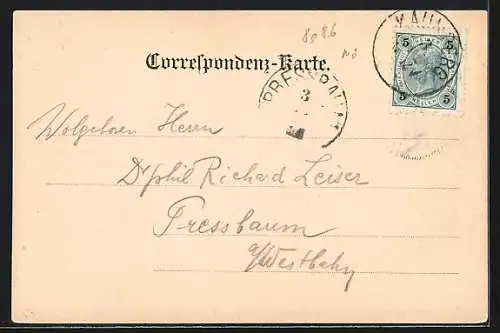 8086
NÖ
5 5
5 HELLER 5
Correspondenz-Karte.
PRESSBAUM
3
Wolgeboren Herrn
Dr phil Richard Leiser
Pressbaum
a/Westbahn